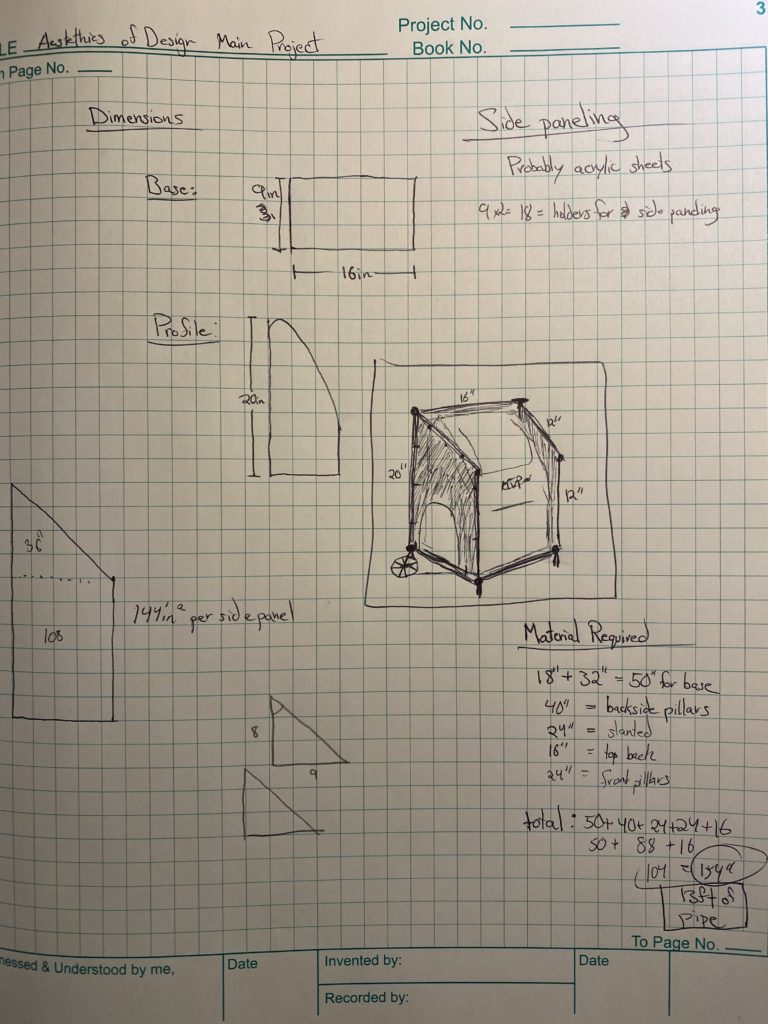 3
Project No.
LE Aestethics of Design Main Project
Book No.
n Page No.
Dimensions
Side paneling
Probably acrylic sheets
Base:
9in
9 x2= 18 = holders for side paneling
16in
Profile:
20in
16"
12"
20"
12"
36"
108
144in² per side panel
Material Required
18" + 32" = 50" for base
40" = backside pillars
24" = slanted
16" = top back
24" = front pillars
8
9
total: 50+40+24+24+16
50+ 88 +16
104 = 154"
13ft of
pipe
To Page No.
nessed & Understood by me,
Date
Invented by:
Date
Recorded by: